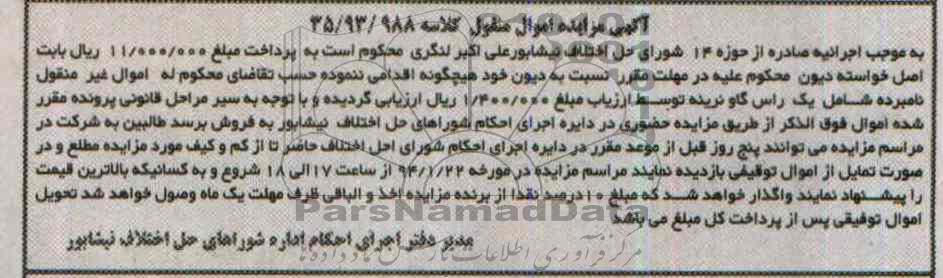 آگهی مزایده اموال منقول کلاسه ۳۵/۹۳/۹۸۸
به موجب اجرائیه صادره از حوزه ۱۴ شورای حل اختلاف نیشابور علی اکبر لنگری محکوم است به پرداخت مبلغ ۱۱/۰۰۰/۰۰۰ ریال بابت
اصل خواسته دیون محکوم علیه در مهلت مقرر نسبت به دیون خود هیچگونه اقدامی ننموده حسب تقاضای محکوم له اموال غیر منقول
نامبرده شامل یک راس گاو نرینه توسط ارزیاب مبلغ ۱/۴۰۰/۰۰۰ ریال ارزیابی گردیده و با توجه به سیر مراحل قانونی پرونده مقرر
شده اموال فوق الذکر از طریق مزایده حضوری در دایره اجرای احکام شوراهای حل اختلاف نیشابور به فروش برسد طالبین به شرکت در
مراسم مزایده می توانند پنج روز قبل از موعد مقرر در دایره اجرای احکام شورای احل اختلاف حاضر تا از کم و کیف مورد مزایده مطلع و در
صورت تمایل از اموال توقیفی بازدیده نمایند مراسم مزایده در مورخه ۹۴/۱/۲۲ از ساعت ۱۷الی ۱۸ شروع و به کسانیکه بالاترین قیمت
را پیشنهاد نمایند واگذار خواهد شد که مبلغ ۱۰درصد نقدا از برنده مزایده اخذ و الباقی ظرف مهلت یک ماه وصول خواهد شد تحویل
اموال توقیفی پس از پرداخت کل مبلغ می باشد
ParsNamadData
مدیر دفتر اجرای احکام اداره شوراهای حل اختلاف نیشابور
مرکز فرآوری اطلاعات پارس نماد داده ها